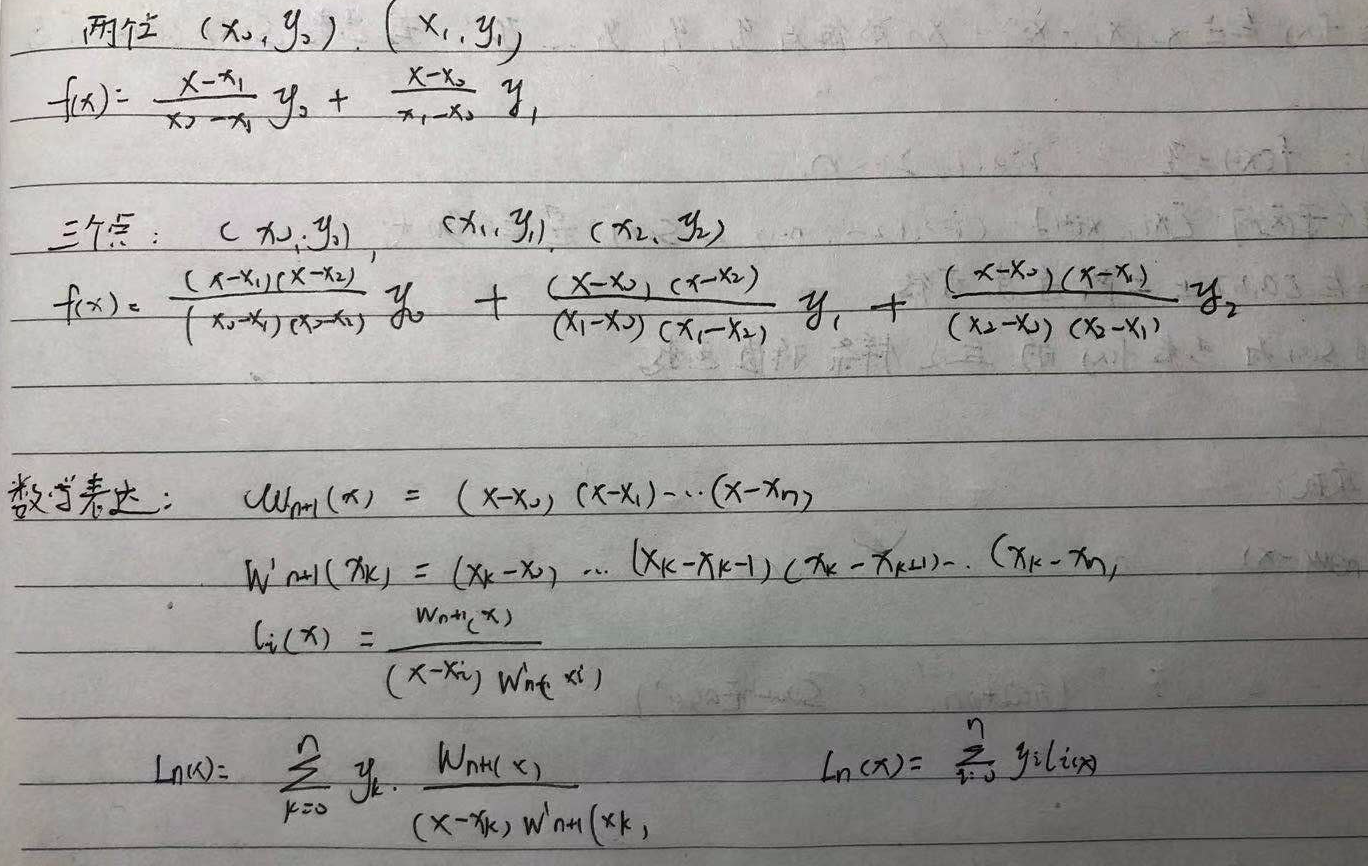 两个点 (x₀, y₀). (x₁, y₁)
f(x) = \frac{x-x₁}{x₀-x₁} y₀ + \frac{x-x₀}{x₁-x₀} y₁
三个点: (x₀, y₀), (x₁, y₁), (x₂, y₂)
f(x) = \frac{(x-x₁)(x-x₂)}{(x₀-x₁)(x₀-x₂)} y₀ + \frac{(x-x₀)(x-x₂)}{(x₁-x₀)(x₁-x₂)} y₁ + \frac{(x-x₀)(x-x₁)}{(x₂-x₀)(x₂-x₁)} y₂
数学表达: W_{n+1}(x) = (x-x₀)(x-x₁)…(x-x_n)
W'_{n+1}(x_k) = (x_k-x₀) … (x_k-x_{k-1})(x_k-x_{k+1})…(x_k-x_n)
l_i(x) = \frac{W_{n+1}(x)}{(x-x_i) W'_{n+1}(x_i)}
L_n(x) = \sum_{k=0}^{n} y_k · \frac{W_{n+1}(x)}{(x-x_k) W'_{n+1}(x_k)} L_n(x) = \sum_{i=0}^{n} y_i l_i(x)